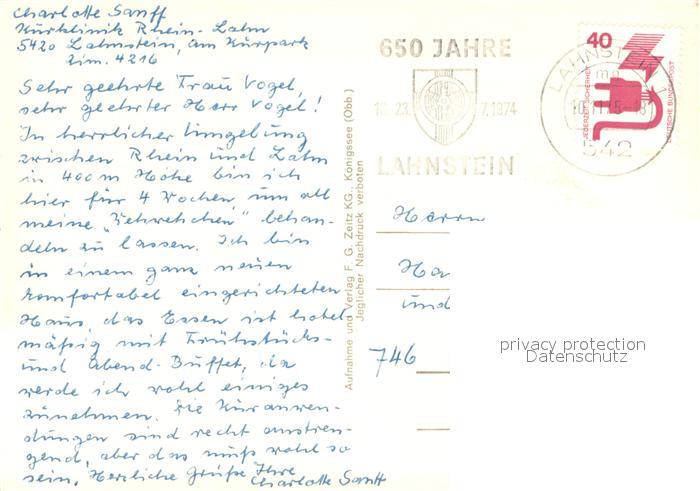 Charlotte Sanff
Kurklinik Rhein-Lahn
5420 Lahnstein, am Kurpark
Zim. 4216
Sehr geehrte Frau Vogel,
sehr geehrter Herr Vogel!
In herrlicher Umgebung
zwischen Rhein und Lahn
in 400 m Höhe bin ich
hier für 4 Wochen, um all
meine „Wehwehchen" behan-
deln zu lassen. Ich bin
in einem ganz neuen
komfortabel eingerichteten
Haus, das Essen ist hotel-
mäßig mit Frühstücks-
und Abend-Buffet, da
werde ich wohl einiges
zunehmen. Die Kuranwen-
dungen sind recht anstren-
gend, aber das muß wohl so
sein. Herzliche Grüße Ihre
Charlotte Sanff
Aufnahme und Verlag F. G. Zeitz KG., Königssee (Obb.)
Jeglicher Nachdruck verboten
650 JAHRE
7.1974
LAHNSTEIN
40
JEDERZEIT SICHERHEIT
DEUTSCHE BUNDESPOST
LAHNSTEIN
mp
542
Herrn
Ha
und
746
privacy protection
Datenschutz